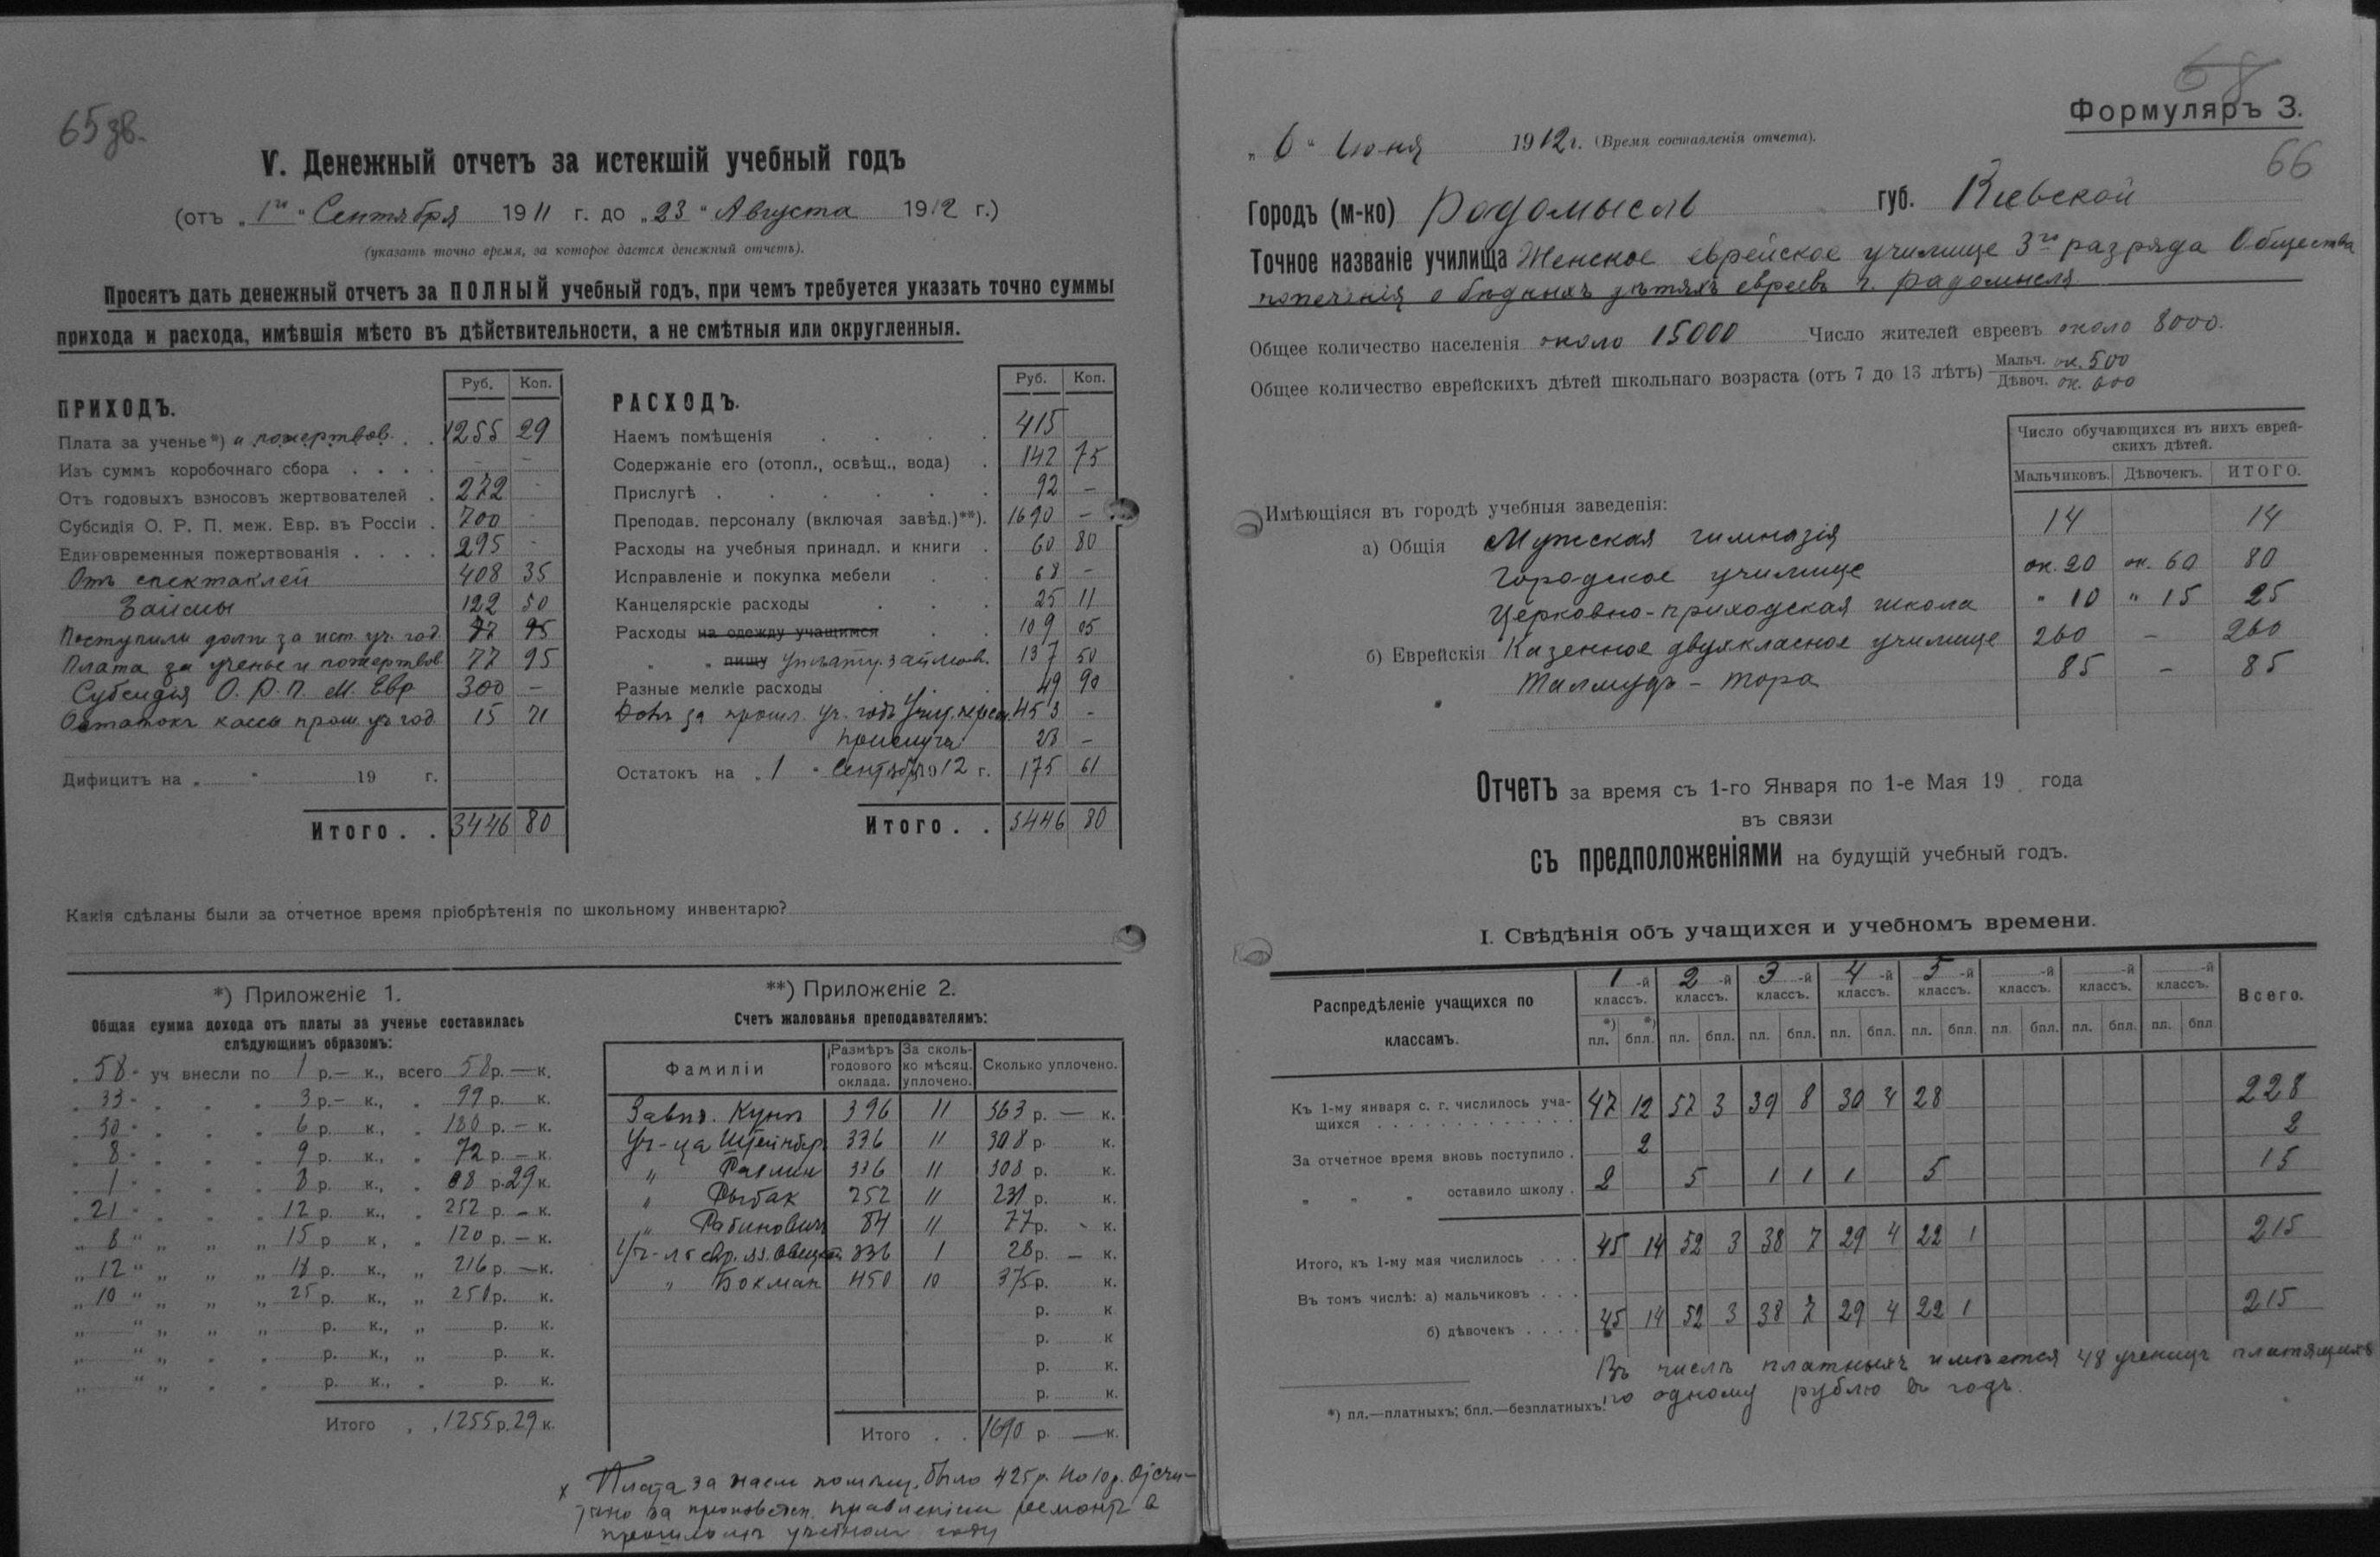 65 зв.
V. Денежный отчетъ за истекшій учебный годъ
(отъ „1го“ Сентября 1911 г. до „23“ Августа 1912 г.)
(указать точно время, за которое дается денежный отчетъ).
Просятъ дать денежный отчетъ за ПОЛНЫЙ учебный годъ, при чемъ требуется указать точно суммы
прихода и расхода, имѣвшія мѣсто въ дѣйствительности, а не смѣтныя или округленныя.
ПРИХОДЪ. Руб. Коп.
Плата за ученье*) и пожертвов. . . 1255 29
Изъ суммъ коробочнаго сбора . . . . - -
Отъ годовыхъ взносовъ жертвователей . 272 -
Субсидія О. Р. П. меж. Евр. въ Россіи . 700 -
Единовременныя пожертвованія . . . . 295 -
Отъ спектаклей 408 35
Займы 122 50
Поступили долги за ист. уч. год. 77 95
Плата за ученье и пожертвов. 77 95
Субсидія О. Р. П. М. Евр. 300 —
Остатокъ кассы прош. уч. год. 15 71
Дифицитъ на „ “ 19 г.
Итого . . 3446 80
РАСХОДЪ. Руб. Коп.
Наемъ помѣщенія . . . . 415
Содержаніе его (отопл., освѣщ., вода) . 142 75
Прислугѣ . . . . . . 92 —
Преподав. персоналу (включая завѣд.)**). 1690 —
Расходы на учебныя принадл. и книги . 60 80
Исправленіе и покупка мебели . . 68 —
Канцелярскіе расходы . . . 25 11
Расходы на одежду учащимся . . 109 05
„ „ пищу Уплату займов. 137 50
Разные мелкіе расходы . . . 49 90
Долг за прошл. уч. годъ Учит. персон. 453 -
прислуга 23 —
Остатокъ на „1“ Сентября 1912 г. 175 61
Итого . . 3446 80
Какія сдѣланы были за отчетное время пріобрѣтенія по школьному инвентарю?
*) Приложеніе 1.
Общая сумма дохода отъ платы за ученье составилась
слѣдующимъ образомъ:
„58“ уч внесли по 1 р.— к., всего 58 р. — к.
„33“ „ „ „ 3 р.— к., „ 99 р. — к.
„30“ „ „ „ 6 р. к., „ 180 р. — к.
„8“ „ „ „ 9 р. к., „ 72 р. — к.
„1“ „ „ „ 8 р. к., „ 08 р. 29 к.
„21“ „ „ „ 12 р. к., „ 252 р. — к.
„8“ „ „ „ 15 р. к., „ 120 р. — к.
„12“ „ „ „ 18 р. к., „ 216 р. — к.
„10“ „ „ „ 25 р. к., „ 250 р. к.
„ “ „ „ „ р. к., „ р. к.
„ “ „ „ „ р. к., „ р. к.
„ “ „ „ „ р. к., „ р. к.
Итого . . 1255 р. 29 к.
**) Приложеніе 2.
Счетъ жалованья преподавателямъ:
Фамиліи Размѣръ годового оклада. За сколько мѣсяц. уплочено. Сколько уплочено.
Завѣд. Кунъ 396 11 363 р. — к.
Уч-ца Штейнбер. 336 11 308 р. к.
„ Равлин 336 11 308 р. к.
„ Рыбак 252 11 231 р. к.
„ Рабинович 84 11 77 р. - к.
Уч-ль евр. яз. 336 1 28 р. — к.
„ Бокман 450 10 375 р. к.
р. к
р. к
р. к.
р. к.
Итого . . 1690 р. — к.
x Плата за наем помѣщ. было 425 р. Но 10 р.
за правленіем ремонтъ в
прошломъ учебном году
68
Формуляръ 3.
66
„6“ Июня 1912 г. (Время составленія отчета).
Городъ (м-ко) Радомысль губ. Кіевской
Точное названіе училища Женское еврейское училище 3го разряда Общества
попеченія о бѣдныхъ дѣтяхъ евреевъ г. Радомысля
Общее количество населенія около 15000 Число жителей евреевъ около 8000.
Общее количество еврейскихъ дѣтей школьнаго возраста (отъ 7 до 13 лѣтъ) Мальч. ок. 500
Дѣвоч. ок. 600
Число обучающихся въ нихъ еврей-
скихъ дѣтей.
Мальчиковъ. Дѣвочекъ. ИТОГО.
Имѣющіяся въ городѣ учебныя заведенія:
а) Общія Мужская гимназія 14 14
Городское училище ок. 20 ок. 60 80
Церковно-приходская школа " 10 " 15 25
б) Еврейскія Казенное двухкласное училище 260 — 260
Талмудъ-тора 85 — 85
Отчетъ за время съ 1-го Января по 1-е Мая 19 . года
въ связи
съ предположеніями на будущій учебный годъ.
I. Свѣдѣнія объ учащихся и учебномъ времени.
Распредѣленіе учащихся по классамъ. 1-й классъ. 2-й классъ. 3-й классъ. 4-й классъ. 5-й классъ. -й классъ. -й классъ. -й классъ. Всего.
*) пл. *) бпл. пл. бпл. пл. бпл. пл. бпл. пл. бпл. пл. бпл. пл. бпл. пл. бпл.
Къ 1-му января с. г. числилось уча-
щихся . . . . 47 12 57 3 39 8 30 4 28 228
За отчетное время вновь поступило . 2 2
„ „ „ оставило школу . 2 5 1 1 1 5 15
Итого, къ 1-му мая числилось . . . 45 14 52 3 38 7 29 4 22 1 215
Въ томъ числѣ: а) мальчиковъ . . .
б) дѣвочекъ . . . . 45 14 52 3 38 7 29 4 22 1 215
Въ числѣ платныхъ имѣется 48 ученицъ платящихъ
по одному рублю въ годъ.
*) пл.—платныхъ; бпл.—безплатныхъ.